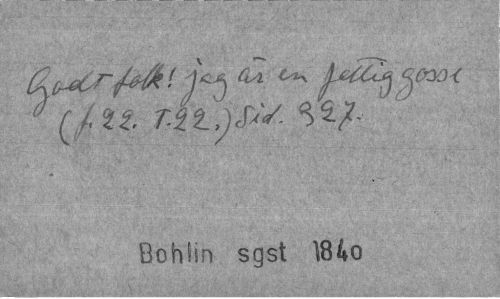 Godt folk! jag är en fattig gosse
(f. 22. T. 22.) Sid. 327.
Bohlin sgst 1840